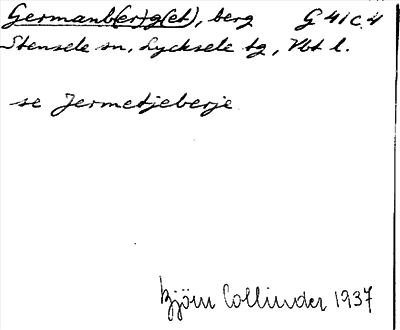 Germanb(er)g(et), berg G 41 c. 4
Stensele sn, Lycksele tg, Vbt l.
se Jermetjeberje
Björn Collinder 1937